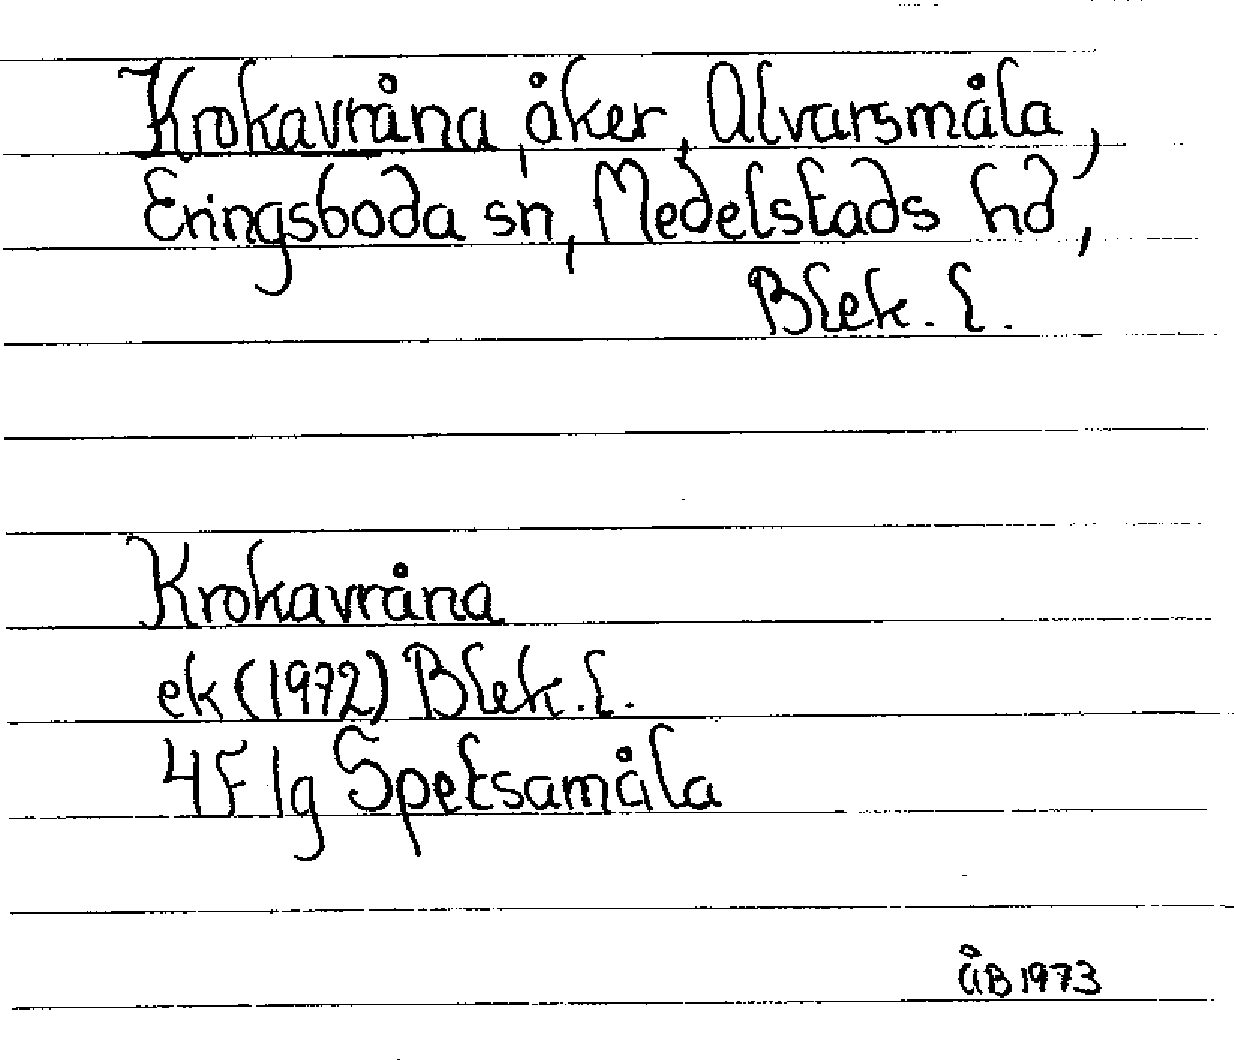 Krokavråna, åker, Alvarsmåla,
Eringsboda sn, Medelstads hd,
Blek. l.
Krokavråna
ek (1972) Blek. l.
4F 1g Spetsamåla
ÅB 1973